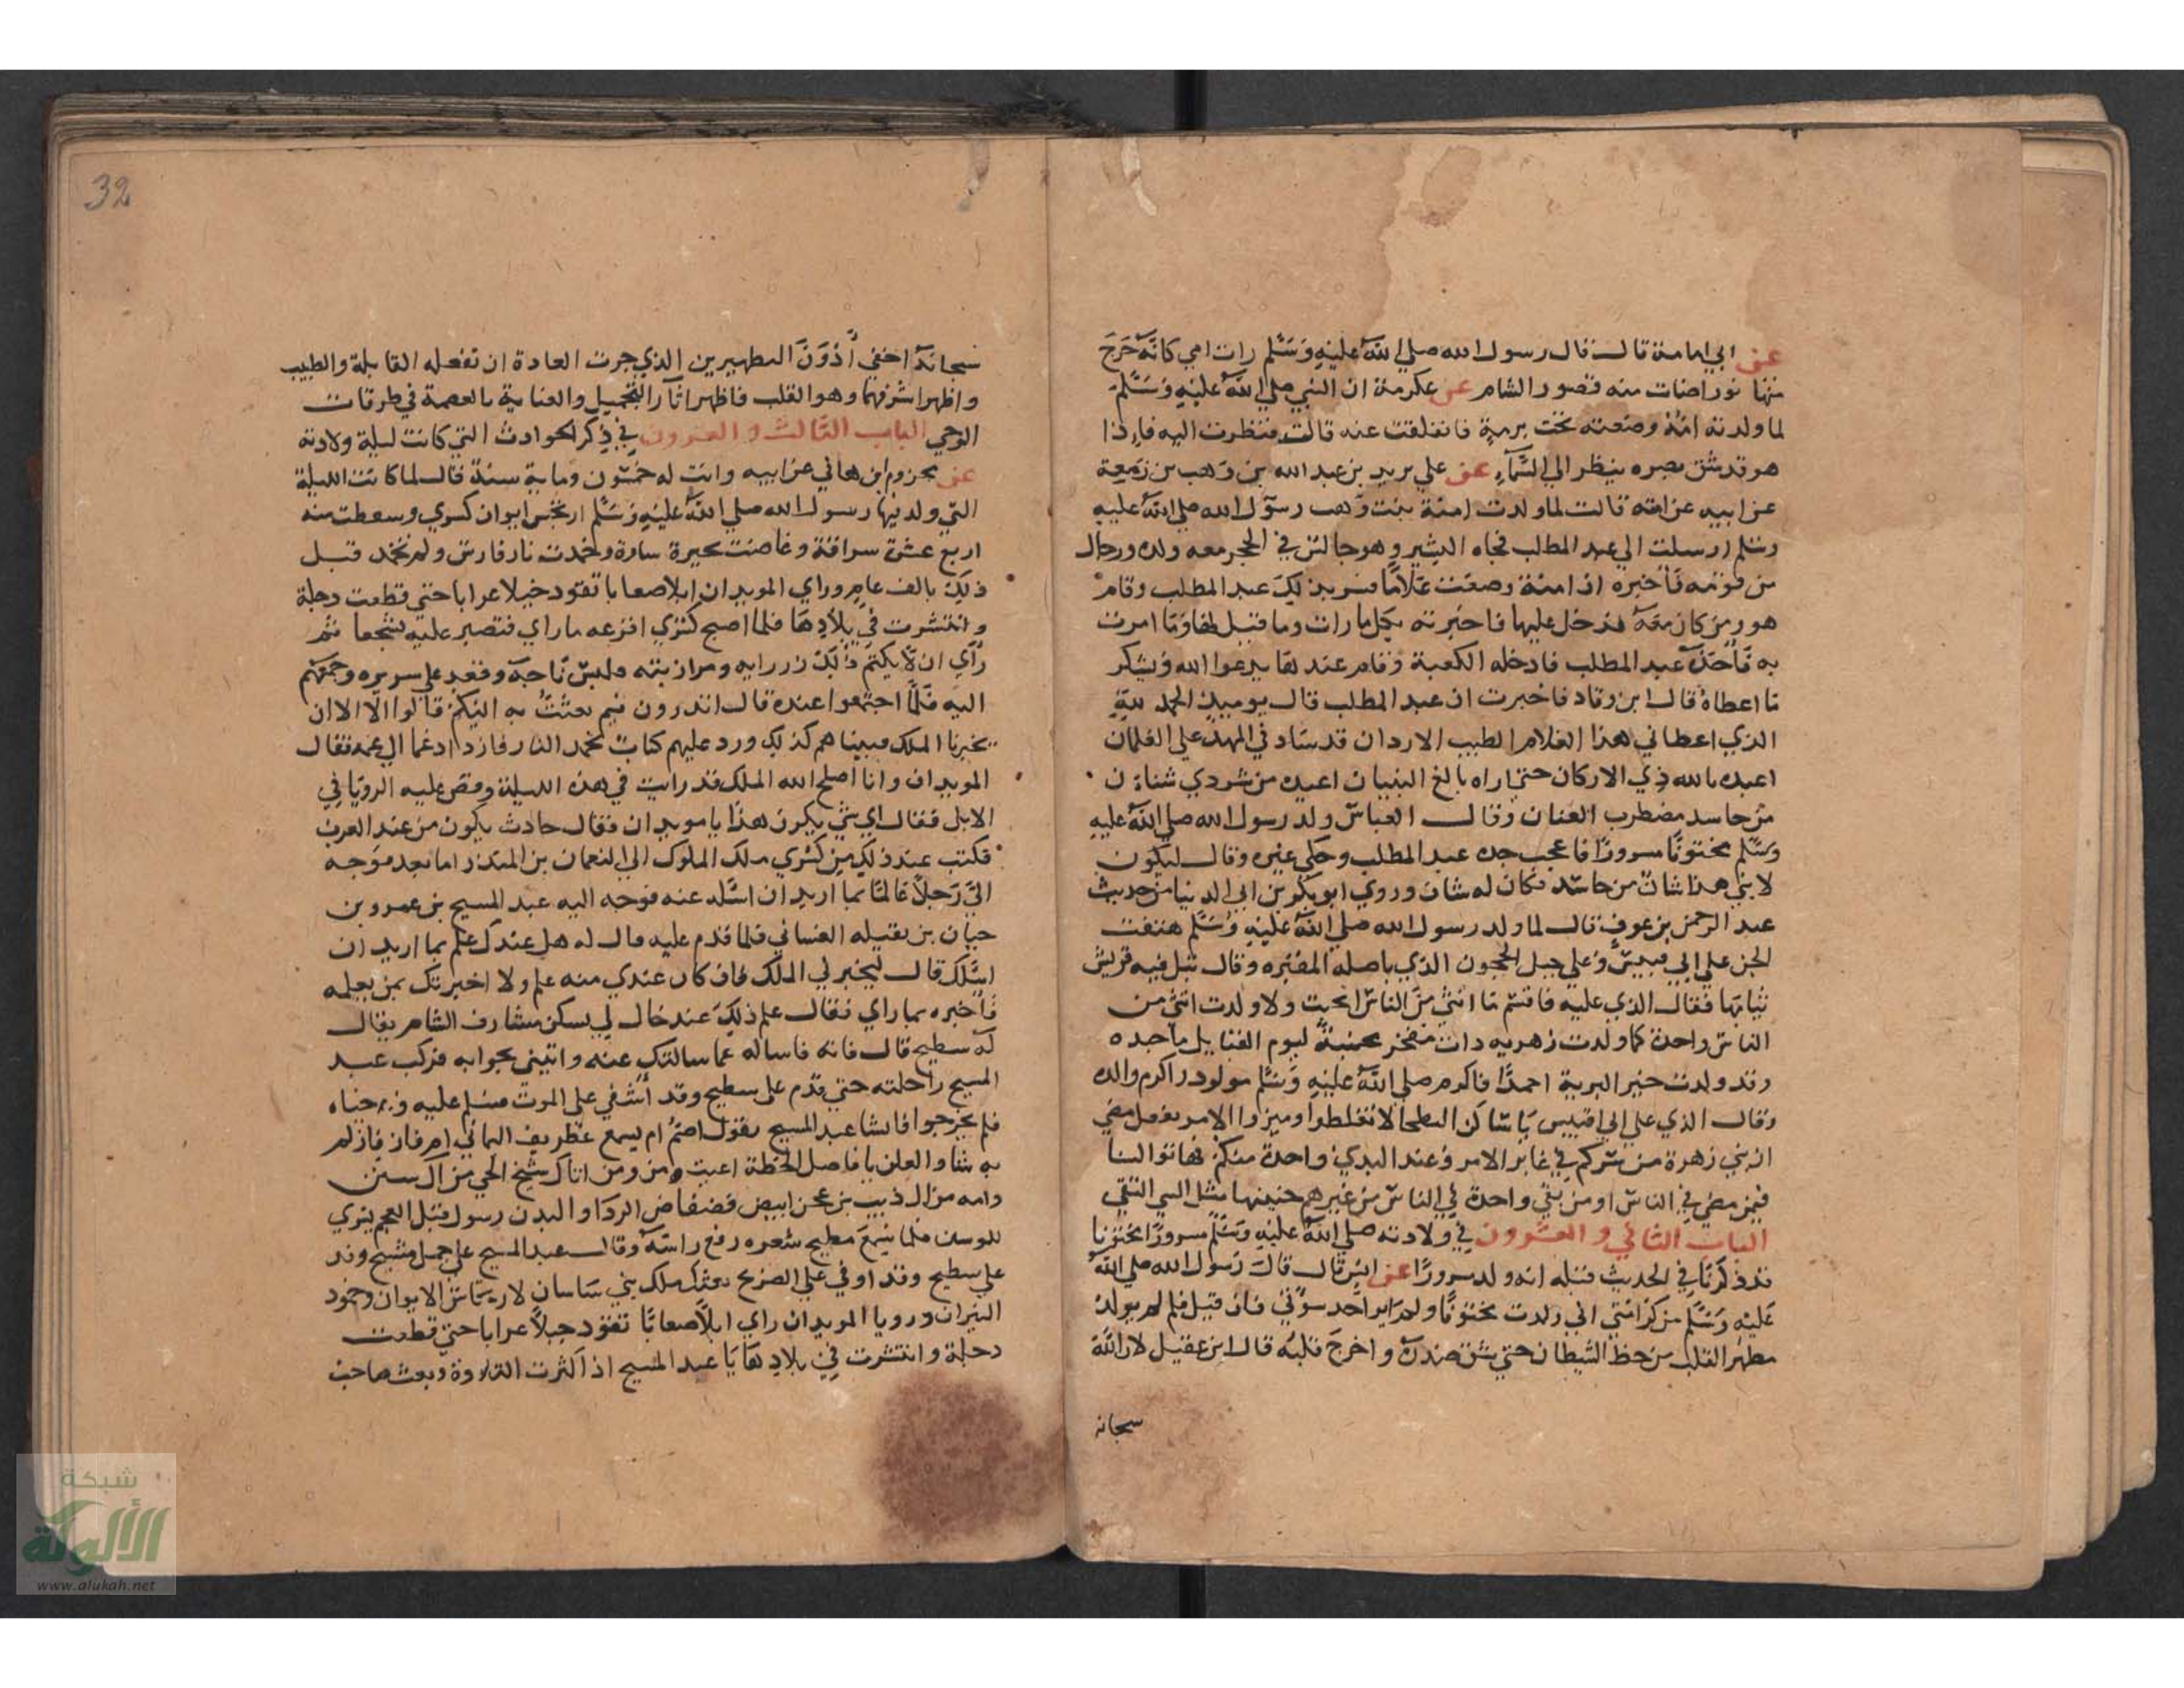 عن ابي امامة قال قال رسول الله صلي الله عليه وسلم رات امي كانه خرج
منها نور اضات منه قصور الشام عن عكرمة ان النبي صلي الله عليه وسلم
لما ولدته امه وضعته تحت برمة فانفلقت عنه قالت فنظرت اليه فاذا
هو قد شق بصره ينظر الي السماء عن علي بن يزيد بن عبد الله بن وهب بن زمعة
عن ابيه عن امته قالت لما ولدت امنة بنت وهب رسول الله صلي الله عليه
وسلم ارسلت الي عبد المطلب فجاه البشير وهو جالس في الحجر معه ولده ورجال
من قومه فاخبره ان امنة وضعت غلاما فسر بذلك عبد المطلب وقام
هو ومن كان معه فدخل عليها فاخبرته بكل ما رات وما قيل لها وما امرت
به فاخذه عبد المطلب فادخله الكعبة وقام عندها يدعوا الله ويشكر
ما اعطاه قال ابن وقاد فاخبرت ان عبد المطلب قال يوميذ الحمد لله
الذي اعطاني هذا الغلام الطيب الاردان قد ساد في المهد علي الغلمان
اعيذه بالله ذي الاركان حتي اراه بالغ البنيان اعيذه من شر ذي شنان
من حاسد مضطرب العنان وقال العباس ولد رسول الله صلي الله عليه
وسلم مختونا مسرورا فاعجب جده عبد المطلب وحكي عنه وقال ليكون
لابني هذا شان من حاسد فكان له شان وروي ابو بكر بن ابي الدنيا من حديث
عبد الرحمن بن عوف قال لما ولد رسول الله صلي الله عليه وسلم هتفت
الجن علي ابي قبيس وعلي جبل الحجون الذي باصله المقبره وقال قبل فيه قريش
ثيابها فقال الذي عليه فاقسم ما انثي من الناس انجبت ولا ولدت انثي من
الناس واحدة كما ولدت زهريه ذات مفخر مجنبة ليوم القبايل ماجده
وقد ولدت خير البرية احمدا فاكرم صلي الله عليه وسلم مولود راكرم والده
وقال الذي علي ابي اقبيس يا ساكن البطحا لا تغلطوا وميزوا الامر بفعل مضي
ان بني زهرة من سركم في غابر الامر وعند البدي واحدة منكم فهاتوا لنا
فيمن مضي في الناس او من بقي واحدة في الناس من غيرهم جنينها مثل النبي التقي
الباب الثاني والعشرون في ولادته صلي الله عليه وسلم مسرورا مختونا
قد ذكرنا في الحديث قبله انه ولد مسرورا عن انس قال قال رسول الله صلي الله
عليه وسلم من كرامتي اني ولدت مختونا ولم ير احد سوئتي فان قيل فلم لم يولد
مطهر القلب من حظ الشيطان حتي شق صدره واخرج قلبه قال ابن عقيل لان الله
سبحانه
32
سبحانه اخفي أدون التطهيرين الذي جرت العادة ان تفعله القابلة والطبيب
واظهر اشرفهما وهو القلب فاظهر اثار التجميل والعناية بالعصمة في طرقات
الوحي الباب الثالث والعشرون في ذكر الحوادث التي كانت ليلة ولادته
عن مخزوم ابن هاني عن ابيه واتت له خمسون وماية سنة قال لما كانت الليلة
التي ولد فيها رسول الله صلي الله عليه وسلم ارتجس ايوان كسري وسقطت منه
اربع عشرة سرافة وغاضت بحيرة ساوة وخمدت نار فارس ولم تخمد قبل
ذلك بالف عام وراي الموبدان ابلا صعابا تقود خيلا عرابا حتي قطعت دجلة
وانتشرت في بلادها فلما اصبح كسري افزعه ما راي فتصبر عليه تشجعا ثم
رأي ان لا يكتم ذلك وزرايه ومرازبته فلبس تاجه وقعد علي سريره وجمعهم
اليه فلما اجتمعوا عنده قال اتدرون فيم بعثت به اليكم قالوا الا الا ان
يخبرنا الملك فبينا هم كذلك ورد عليهم كتاب بخمد النار فازداد غما الي غمه فقال
الموبدان وانا اصلح الله الملك قد رايت في هذه الليلة وقص عليه الرويا في
الابل فقال اي شي يكون هذا يا موبدان فقال حادث يكون من عند العرب
فكتب عند ذلك من كسري ملك الملوك الي النعمان بن المنذر اما بعد فوجه
الي رجلا عالما بما اريد ان اسئله عنه فوجه اليه عبد المسيح بن عمرو بن
حيان بن بقيله الغساني فلما قدم عليه قال له هل عندك علم بما اريد ان
اسئلك قال ليخبرني الملك فان كان عندي منه علم ولا اخبرتك بمن يعلمه
فاخبره بما راي فقال علم ذلك عند خال لي يسكن مشارف الشام يقال
له سطيح قال فاته فاساله عما سالتك عنه واتيني بجوابه فركب عبد
المسيح راحلته حتي قدم علي سطيح وقد أشفي علي الموت فسلم عليه وحياه
فلم يجر جوابا فانشا عبد المسيح يقول اصم ام يسمع غطريف اليماني ام فاز فازلم
به شاو العلن يا فاصل الخطة اعيت من ومن اتاك شيخ الحي من ال سنن
وامه من ال ذيب بن حجن ابيض فضفاض الردا والبدن رسول قبل العجم يسري
للوسن فلما سمع سطيح شعره رفع راسه وقال عبد المسيح علي جمل مشيح ورد
علي سطيح وقد اوفي علي الضريح بعثك ملك بني ساسان لارتجاس الايوان وخمود
النيران ورويا الموبدان راي ابلا صعابا تقود خيلا عرابا حتي قطعت
دجلة وانتشرت في بلادها يا عبد المسيح اذا كثرت التلاوة وبعث صاحب
شبكة
الألوكة
www.alukah.net